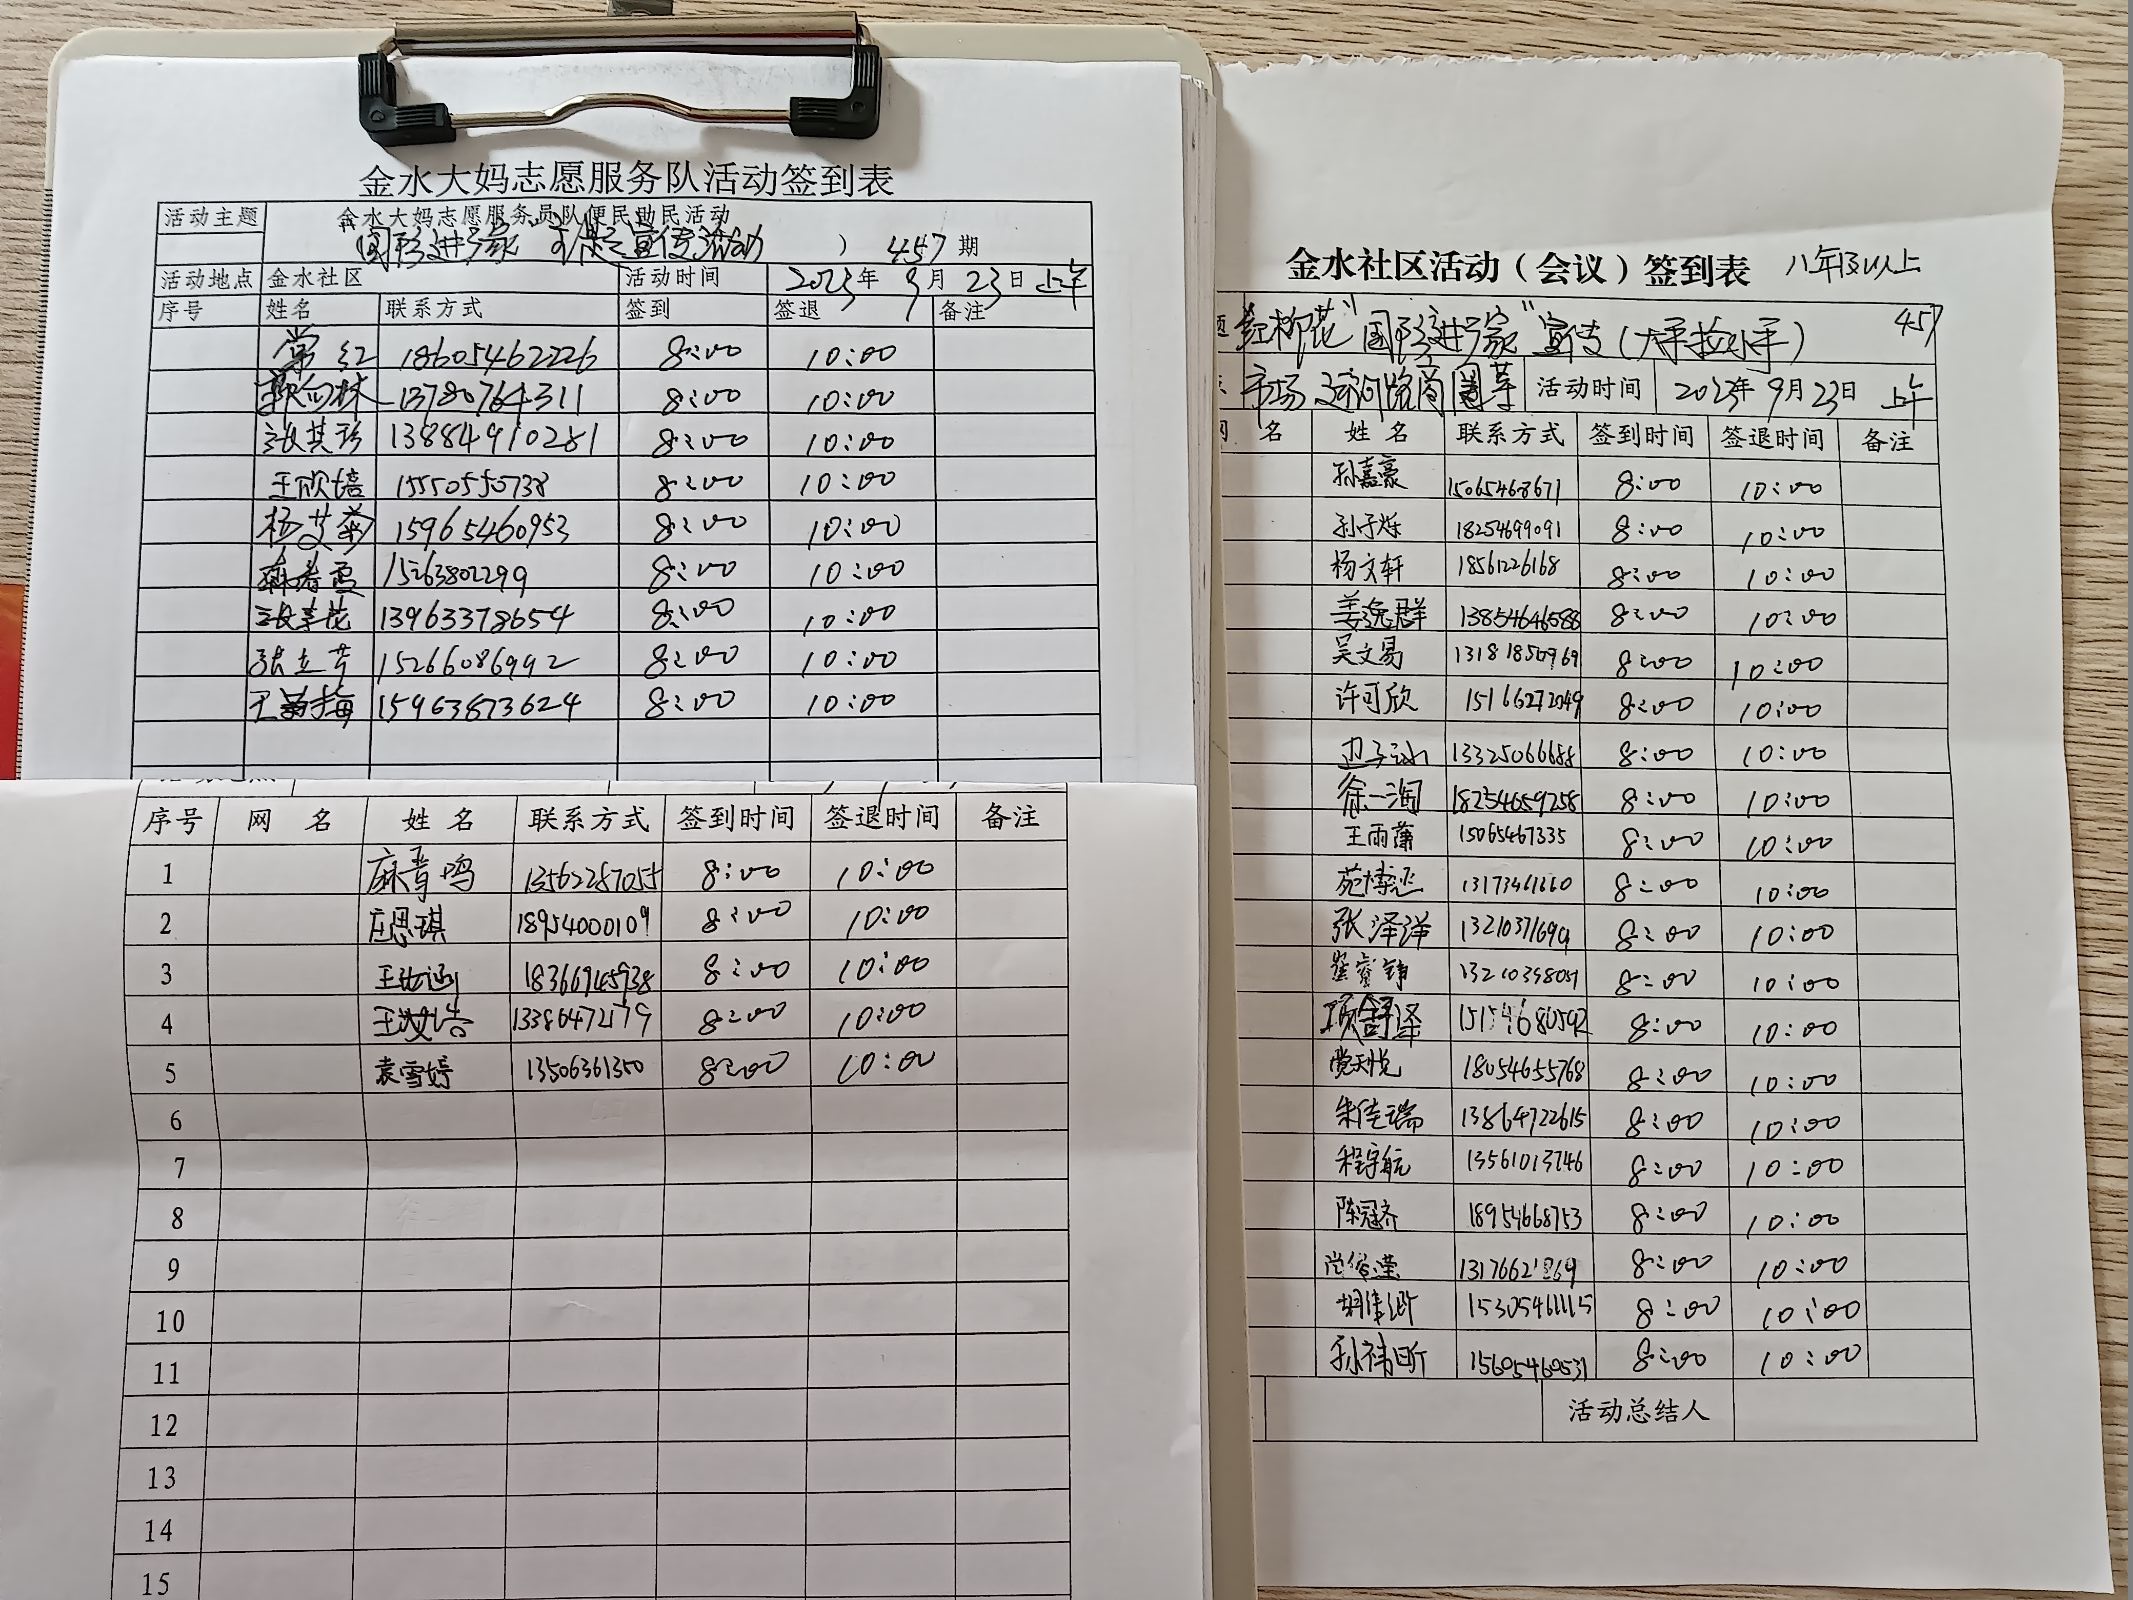 金水大妈志愿服务队活动签到表
活动主题 金水大妈志愿服务员队便民助民活动
宣传活动 ) 457期
活动地点 金水社区 活动时间 2023年 9月 23日 上午
序号 姓名 联系方式 签到 签退 备注
常红 18605462226 8:00 10:00
13780764311 8:00 10:00
张其珍 13884910281 8:00 10:00
王欣培 15550550738 8:00 10:00
杨艾菊 15965460953 8:00 10:00
麻春霞 15263802299 8:00 10:00
张美花 13963378654 8:00 10:00
张立芳 15266086992 8:00 10:00
王菊梅 15963873624 8:00 10:00
序号 网 名 姓 名 联系方式 签到时间 签退时间 备注
1 麻晋鸣 13562287055 8:00 10:00
2 庄思琪 18954000109 8:00 10:00
3 18366945938 8:00 10:00
4 13386472179 8:00 10:00
5 袁雪婷 13506361350 8:00 10:00
6
7
8
9
10
11
12
13
14
15
金水社区活动（会议）签到表 八年级以上
红柳花“国 进 家”宣传(大手拉小手) 457
市场 运河路商圈等 活动时间 2023年9月23日 上午
名 姓 名 联系方式 签到时间 签退时间 备注
孙嘉豪 15065468671 8:00 10:00
孙子烁 18254699091 8:00 10:00
杨文轩 1856126168 8:00 10:00
姜逸群 13854646588 8:00 10:00
吴文易 13181850969 8:00 10:00
许可欣 15166272049 8:00 10:00
边子涵 13325066688 8:00 10:00
徐一洵 18254659258 8:00 10:00
王雨蒲 15065467335 8:00 10:00
苑博丞 13173461660 8:00 10:00
张泽洋 13210371699 8:00 10:00
崔睿铮 13210398051 8:00 10:00
项舒泽 15154680592 8:00 10:00
党天悦 18054655768 8:00 10:00
朱佳瑞 13864722615 8:00 10:00
程宇航 13561013746 8:00 10:00
陈冠齐 18954668753 8:00 10:00
尚俊滢 13176621869 8:00 10:00
15305461115 8:00 10:00
孙祎昕 15605460531 8:00 10:00
活动总结人